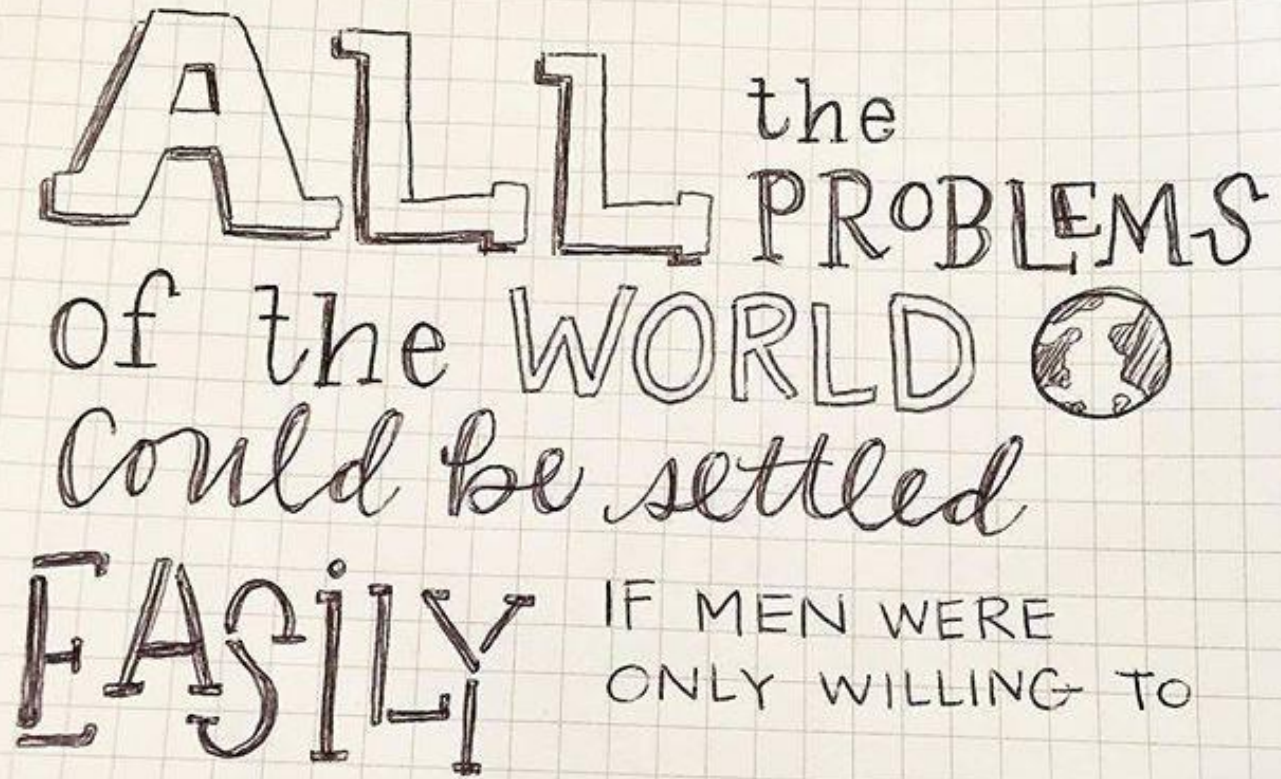 ALL the
PROBLEMS
of the WORLD
could be settled
EASiLY IF MEN WERE
ONLY WILLING TO